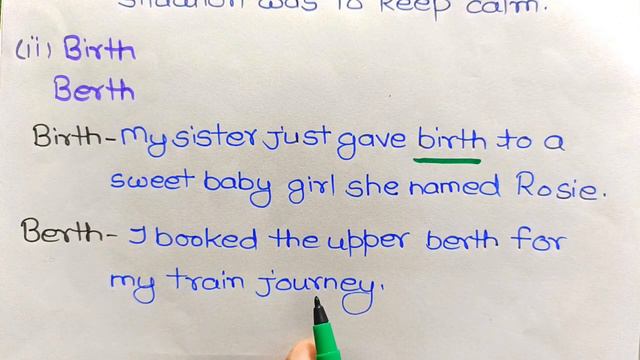 situation was to keep calm.
(ii) Birth
Berth
Birth - My sister just gave birth to a
sweet baby girl she named Rosie.
Berth - I booked the upper berth for
my train journey.